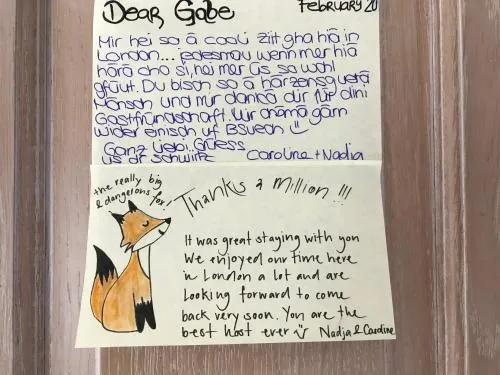 Dear Gabe
February 20
Mir hei so ä cooli Ziit gha hiä in
London... jedesmau wenn mer hiä
härä cho si, hei mer üs so wohl
gfüut. Du bisch so ä härzensguetä
Mönsch und mir dankä dir für dini
Gastfründschaft. Mir chämä gärn
wider einisch uf Bsuech
Ganz liebi Grüess
us dr Schwiitz
Caroline + Nadja
the really big
& dangerous fox!
Thanks a million !!!
It was great staying with you
We enjoyed our time here
in London a lot and are
Looking forward to come
back very soon. You are the
best host ever Nadja & Caroline